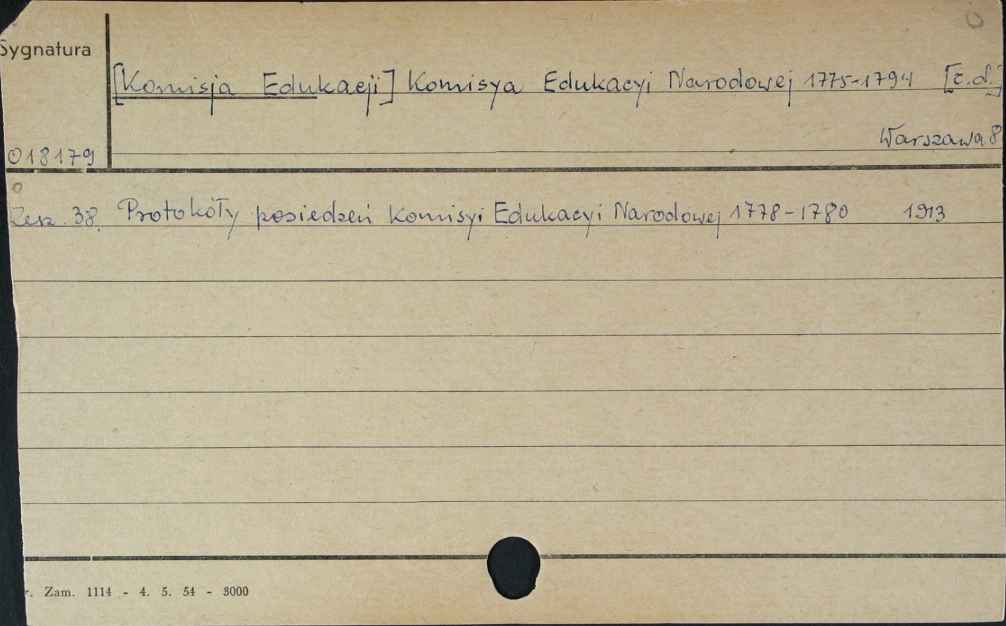 Sygnatura
[Komisja Edukacji] Komisya Edukacyi Narodowej 1775-1794 [c.d.]
Warszawa 8
018179
Zesz. 38. Protokóły posiedzeń Komisyi Edukacyi Narodowej 1778-1780 1913
r. Zam. 1114 - 4. 5. 54 - 3000